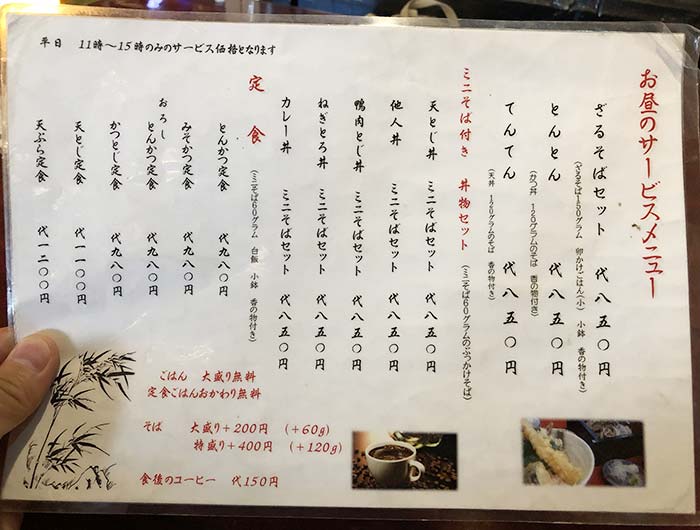 お昼のサービスメニュー
ざるそばセット 代八五〇円
(ざるそば150グラム 卵かけごはん(小) 小鉢 香の物付き)
とんとん 代八五〇円
(かつ丼 120グラムのそば 香の物付き)
てんてん 代八五〇円
(天丼 120グラムのそば 香の物付き)
ミニそば付き 丼物セット (ミニそば60グラムのぶっかけそば)
天とじ丼 ミニそばセット 代八五〇円
他人丼 ミニそばセット 代八五〇円
鴨肉とじ丼 ミニそばセット 代八五〇円
ねぎとろ丼 ミニそばセット 代八五〇円
カレー丼 ミニそばセット 代八五〇円
定食 (ミニそば60グラム 白飯 小鉢 香の物付き)
とんかつ定食 代九八〇円
みそかつ定食 代九八〇円
おろし
とんかつ定食 代九八〇円
かつとじ定食 代九八〇円
天とじ定食 代一一〇〇円
天ぷら定食 代一二〇〇円
平日 11時～15時のみのサービス価格となります
ごはん 大盛り無料
定食ごはんおかわり無料
そば 大盛り+200円 (+60g)
特盛り+400円 (+120g)
食後のコーヒー 代150円